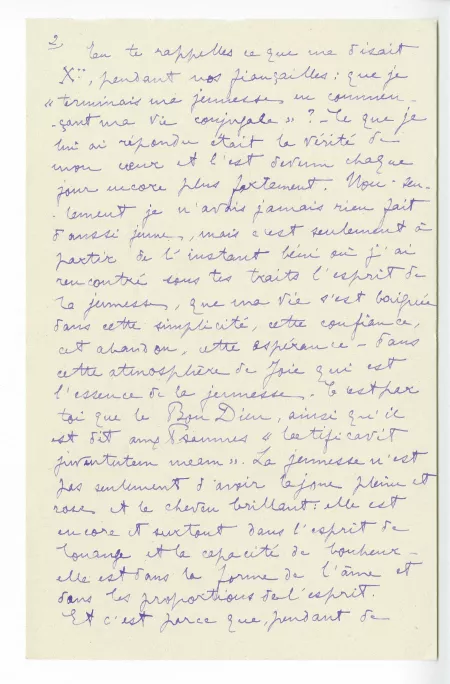 2
Tu te rappelles ce que me disait
X..., pendant nos fiançailles : que je
« terminais ma jeunesse en commen-
-çant ma vie conjugale » ? - Ce que je
lui ai répondu était la vérité de
mon cœur et l'est devenu chaque
jour encore plus fortement. Non-seu-
-lement je n'avais jamais rien fait
d'aussi jeune, mais c'est seulement à
partir de l'instant béni où j'ai
rencontré sous tes traits l'esprit de
la jeunesse, que ma vie s'est baignée
dans cette simplicité, cette confiance,
cet abandon, cette espérance - dans
cette atmosphère de Joie qui est
l'essence de la jeunesse. C'est par
toi que le Bon Dieu, ainsi qu'il
est dit aux Psaumes « laetificavit
juventutem meam ». La jeunesse n'est
pas seulement d'avoir la joue pleine et
rose et le cheveu brillant : elle est
encore et surtout dans l'esprit de
louange et la capacité de bonheur -
elle est dans la forme de l'âme et
dans les proportions de l'esprit.
Et c'est parce que, pendant de